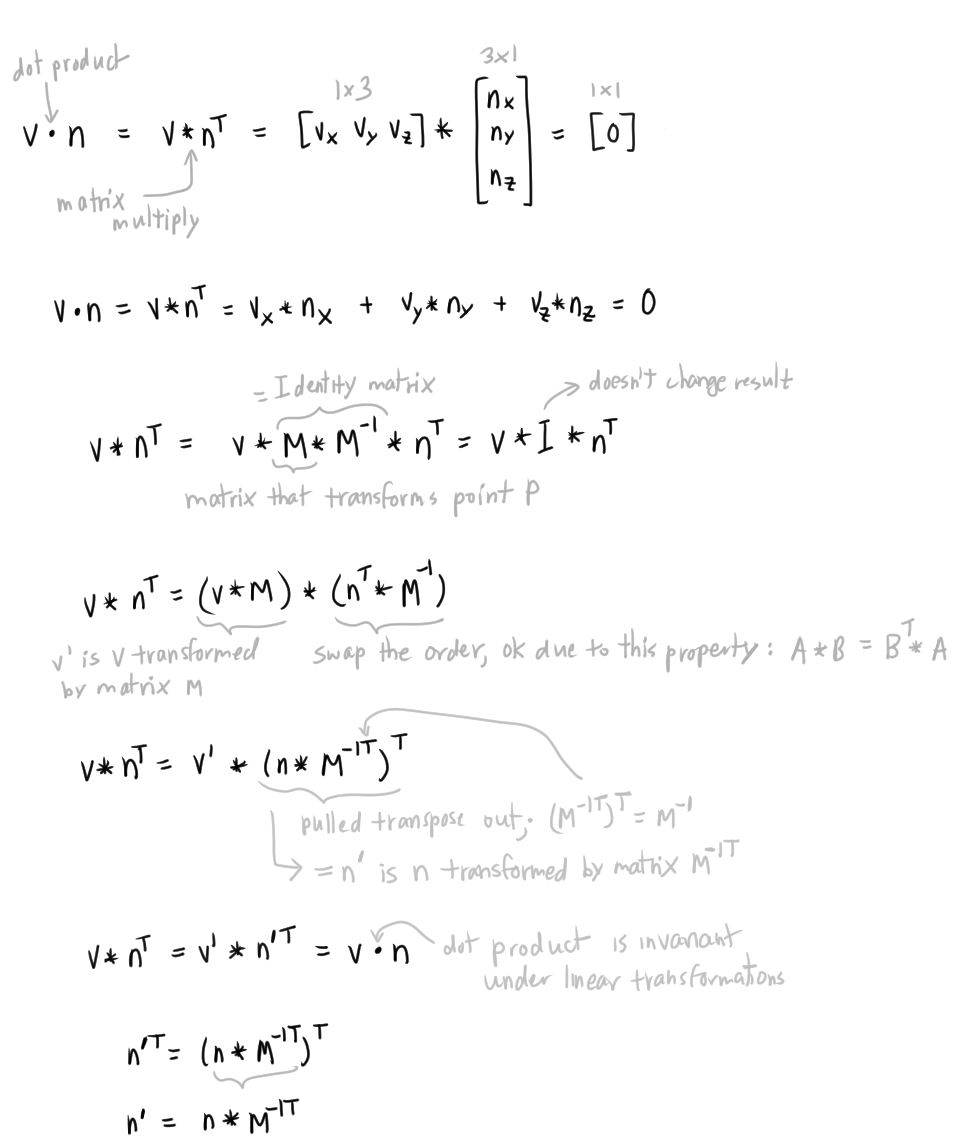 dot product
1x3
3x1
1x1
v • n = v * nᵀ = [vx vy vz] * [nx ny nz] = [0]
matrix multiply
v • n = v * nᵀ = vx * nx + vy * ny + vz * nz = 0
= Identity matrix
doesn't change result
v * nᵀ = v * M * M⁻¹ * nᵀ = v * I * nᵀ
matrix that transforms point P
v * nᵀ = (v * M) * (nᵀ * M⁻¹)
v' is v transformed
by matrix M
swap the order, ok due to this property: A * B = Bᵀ * A
v * nᵀ = v' * (n * M⁻¹ᵀ)ᵀ
pulled transpose out; (M⁻¹ᵀ)ᵀ = M⁻¹
= n' is n transformed by matrix M⁻¹ᵀ
v * nᵀ = v' * n'ᵀ = v • n
dot product is invariant
under linear transformations
n'ᵀ = (n * M⁻¹ᵀ)ᵀ
n' = n * M⁻¹ᵀ